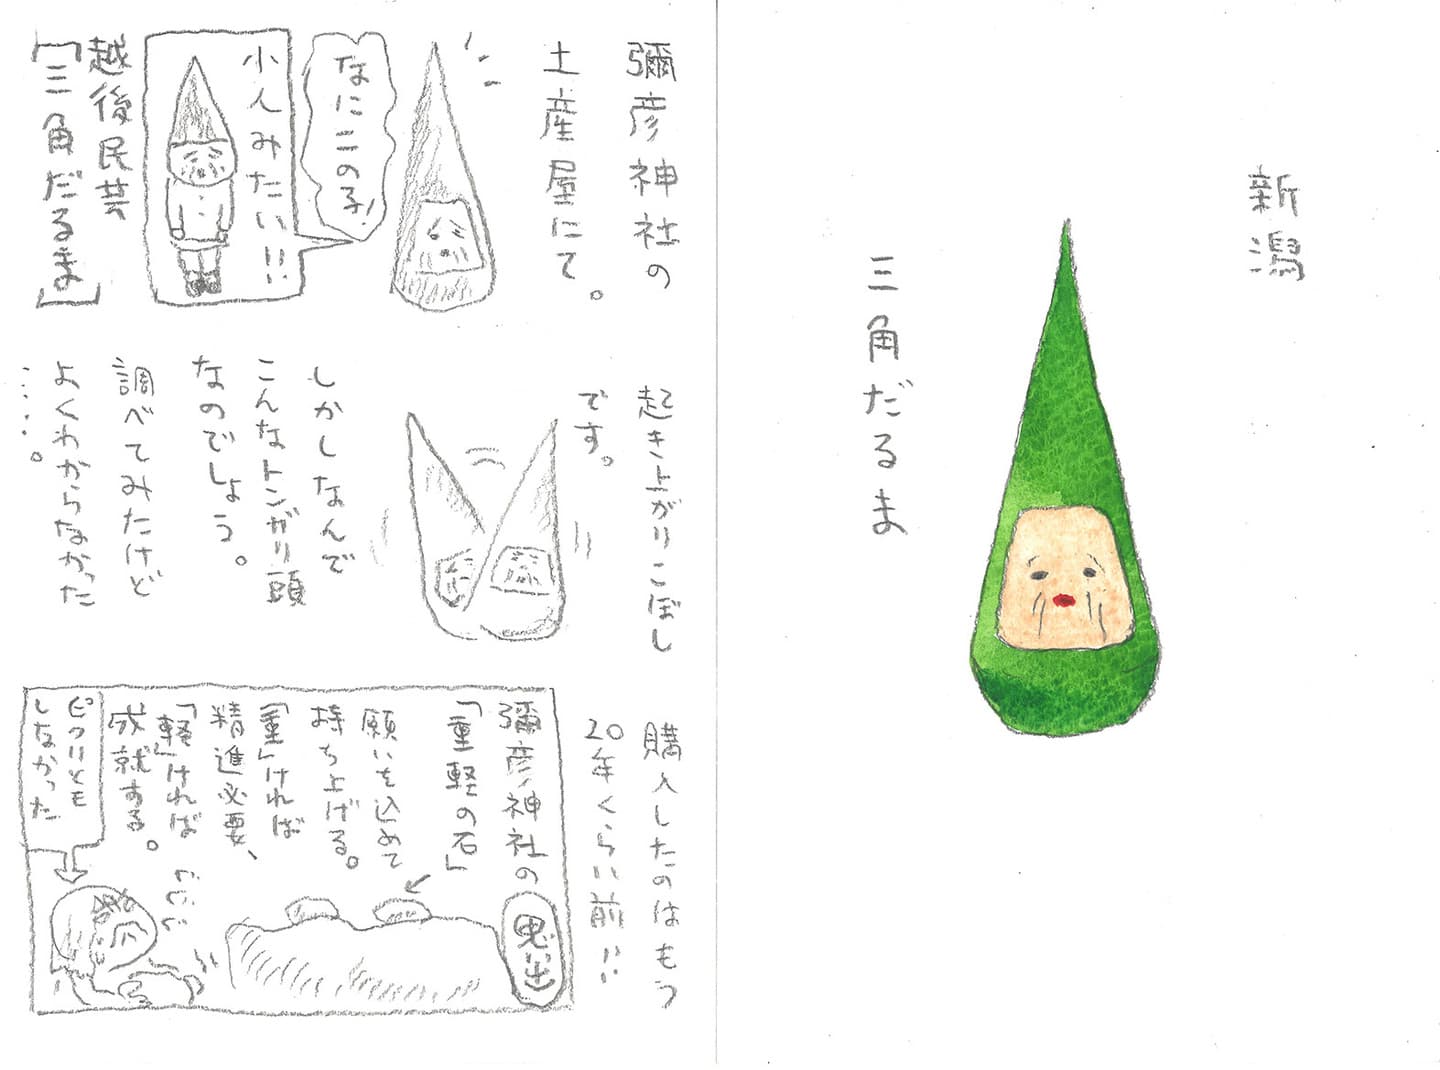 新潟
三角だるま
彌彦神社の
土産屋にて。
なにこの子!
小人みたい!!
越後民芸
「三角だるま」
起き上がりこぼし
です。
しかしなんで
こんなトンガリ頭
なのでしょう。
調べてみたけど
よくわからなかった
‥‥。
購入したのはもう
20年くらい前!!
思い出
彌彦神社の
「重軽の石」
願いを込めて
持ち上げる。
「重」ければ
精進必要、
「軽」ければ
成就する。
ピクリとも
しなかった